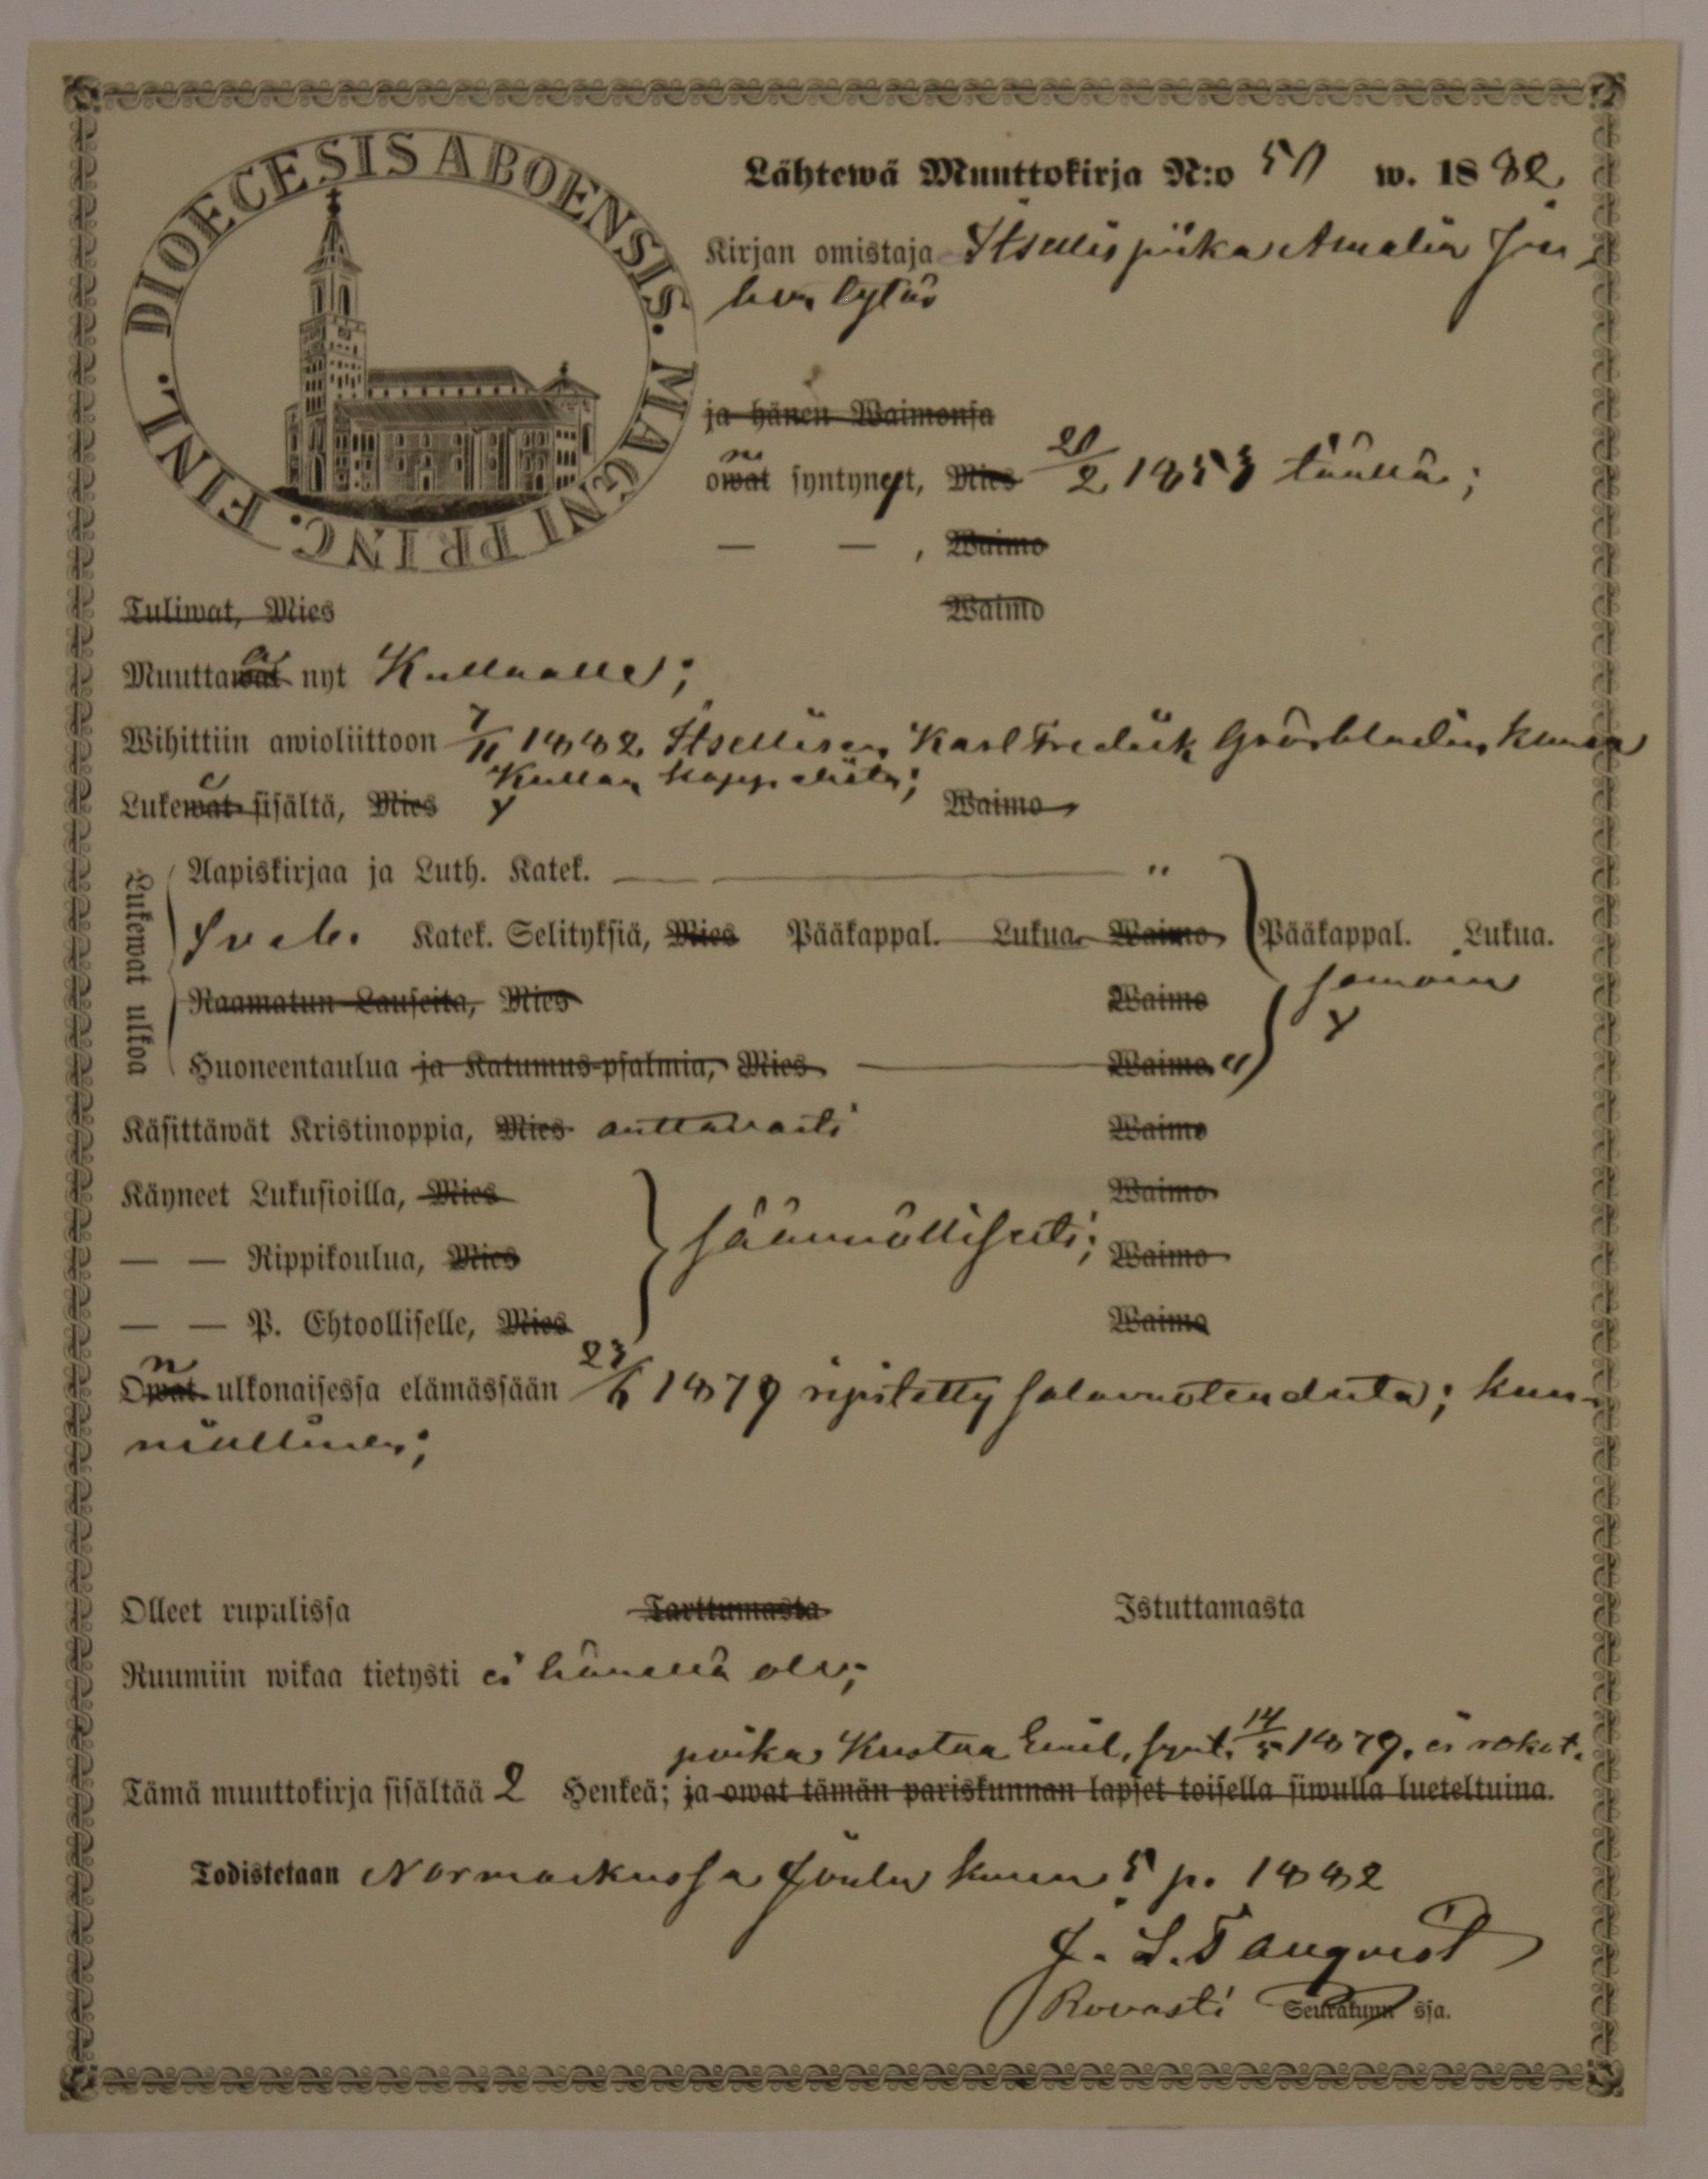 DIOECESIS ABOENSIS. MAGNI PRINC. FINL.
Lähtewä Muuttokirja N:o 50 w. 1882
Kirjan omistaja Itsellis piika Amalia Ju-
han tytär
ja hänen Waimonsa
n
owat syntyneet, Mies 20/2 1853 täällä;
— — , Waimo
Tuliwat, Mies Waimo
Muuttawat a nyt Kullaalle;
Wihittiin awioliittoon 7/11 1882 Itsellisen Karl Fredrik Grönbladin kanssa
Kullaan kappelista;
Lukewat e sisältä, Mies y Waimo
Lukewat ulkoa
Aapiskirjaa ja Luth. Katek. — — "
Sveb. Katek. Selityksiä, Mies Pääkappal. Lukua. Waimo Pääkappal. Lukua.
samoin
y
Raamatun Lauseita, Mies Waimo
Huoneentaulua ja Katumus-psalmia, Mies — Waimo "
Käsittäwät Kristinoppia, Mies auttavasti Waimo
Käyneet Lukusioilla, Mies Waimo
säännöllisesti;
— — Rippikoulua, Mies Waimo
— — P. Ehtoolliselle, Mies Waimo
n
Owat ulkonaisessa elämässään 23/6 1879 ripitetty salavuoteudesta; kun-
niallinen;
Olleet rupulissa Tarttumasta Istuttamasta
Ruumiin wikaa tietysti ei hänellä ole;
poika Kustaa Emil, synt. 14/5 1879. ei rokot.
Tämä muuttokirja sisältää 2 Henkeä; ja owat tämän pariskunnan lapset toisella siwulla lueteltuina.
Todistetaan Normarkussa Joulu kuun 5 p. 1882
J. L. Tanqvist
Rovasti Seurakunn ssa.